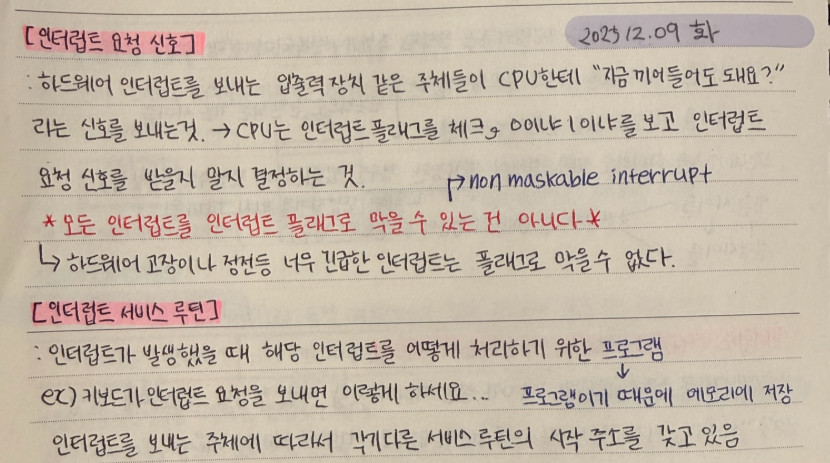 [인터럽트 요청 신호] 2025 12.09 화
: 하드웨어 인터럽트를 보내는 입출력장치 같은 주체들이 CPU한테 "지금 끼어들어도 돼요?"
라는 신호를 보내는것. → CPU는 인터럽트플래그를 체크, 0이냐 1이냐를 보고 인터럽트
요청 신호를 받을지 말지 결정하는 것.
non maskable interrupt
* 모든 인터럽트를 인터럽트 플래그로 막을 수 있는 건 아니다 *
↳ 하드웨어 고장이나 정전등 너무 긴급한 인터럽트는 플래그로 막을수 없다.
[인터럽트 서비스 루틴]
: 인터럽트가 발생했을 때 해당 인터럽트를 어떻게 처리하기 위한 프로그램
ex) 키보드가 인터럽트 요청을 보내면 이렇게 하세요... 프로그램이기 때문에 메모리에 저장
인터럽트를 보내는 주체에 따라서 각기다른 서비스루틴의 시작 주소를 갖고 있음